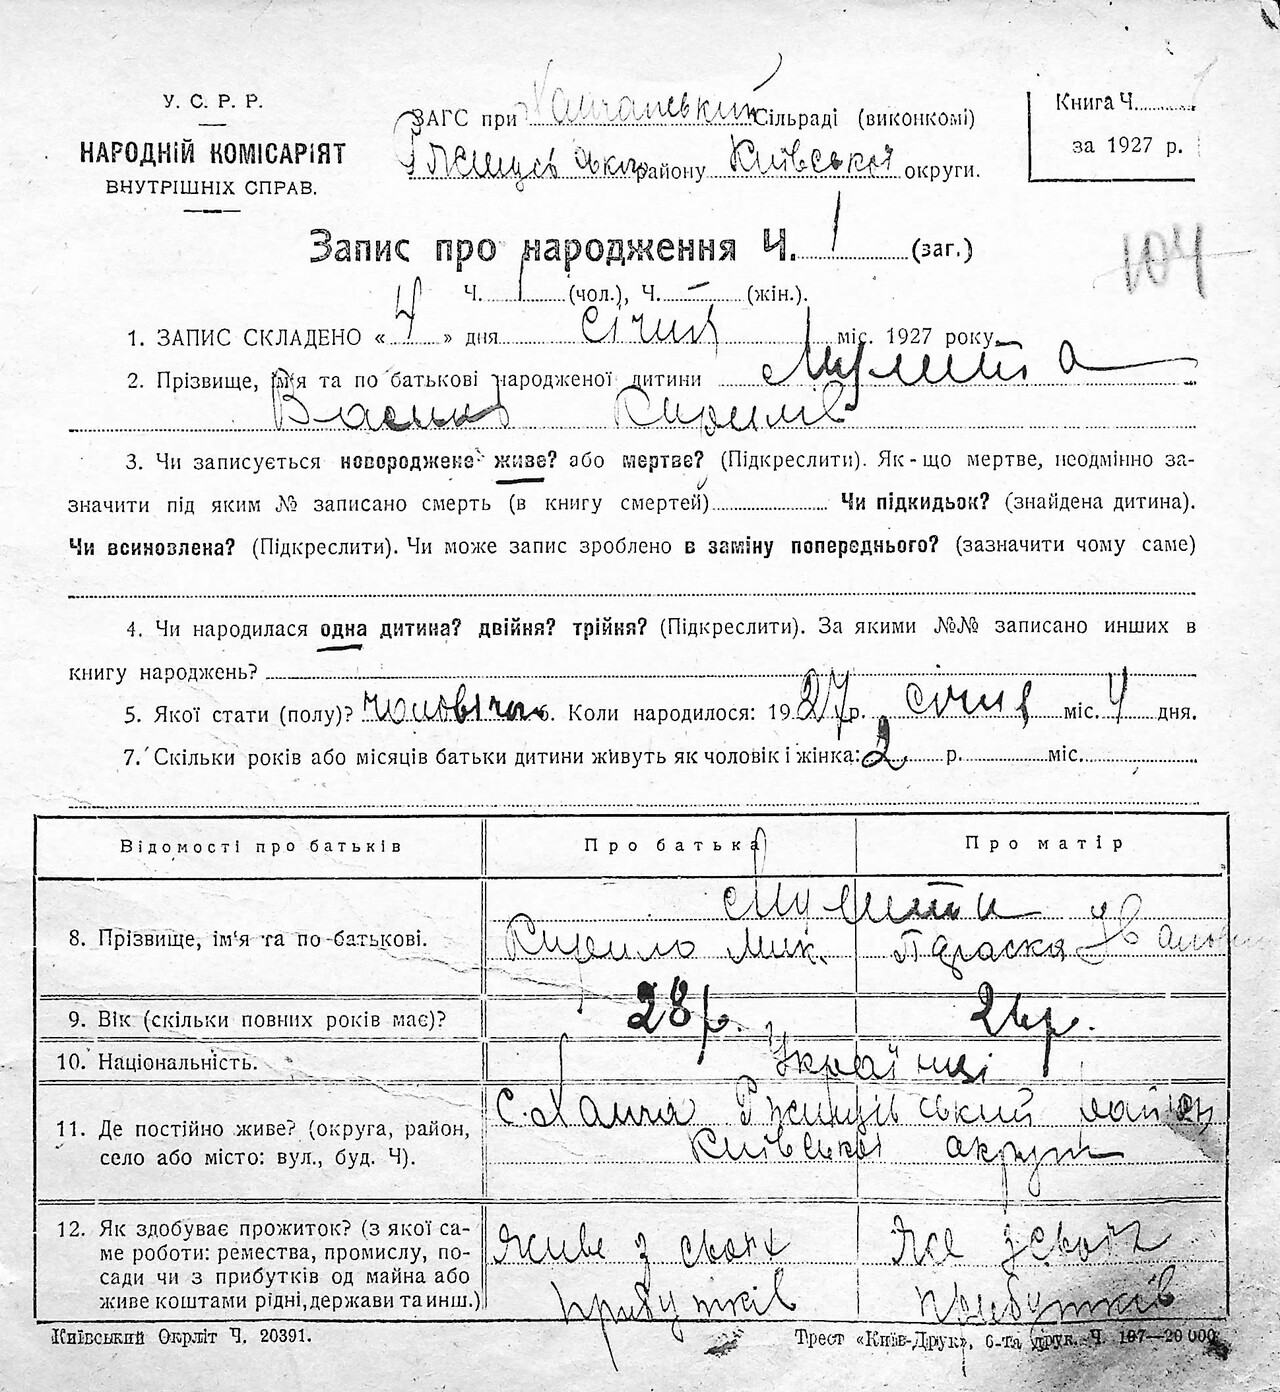 У. С. Р. Р.
НАРОДНІЙ КОМІСАРІЯТ
ВНУТРІШНІХ СПРАВ.
ЗАГС при Сільраді (виконкомі)
району Київської округи.
Книга Ч.
за 1927 р.
Запис про народження Ч. 1 (заг.)
104
Ч. 1 (чол.), Ч. – (жін.).
1. ЗАПИС СКЛАДЕНО « 4 » дня січня міс. 1927 року
2. Прізвище, ім'я та по батькові народженої дитини
Василь Кирилів
3. Чи записується новороджене живе? або мертве? (Підкреслити). Як-що мертве, неодмінно за-
значити під яким № записано смерть (в книгу смертей) Чи підкидьок? (знайдена дитина).
Чи всиновлена? (Підкреслити). Чи може запис зроблено в заміну попереднього? (зазначити чому саме)
4. Чи народилася одна дитина? двійня? трійня? (Підкреслити). За якими №№ записано инших в
книгу народжень?
5. Якої стати (полу)? чоловіча 6. Коли народилося: 1927 р. січня міс. 4 дня.
7. Скільки років або місяців батьки дитини живуть як чоловік і жінка: 2 р. міс.
Відомості про батьків Про батька Про матір
8. Прізвище, ім'я та по-батькові.
Кирило Мик. Параска Іванов
9. Вік (скільки повних років має)? 28 р. р.
10. Національність. Українці
11. Де постійно живе? (округа, район,
село або місто: вул., буд. Ч).
с. Ханча Ржищівський район
Київської округи
12. Як здобуває прожиток? (з якої са-
ме роботи: ремества, промислу, по-
сади чи з прибутків од майна або
живе коштами рідні, держави та инш.)
живе з своїх з своїх
прибутків прибутків
Київський Окрліт Ч. 20391.
Трест «Київ-Друк», 6-та друк. Ч. 197—20 000